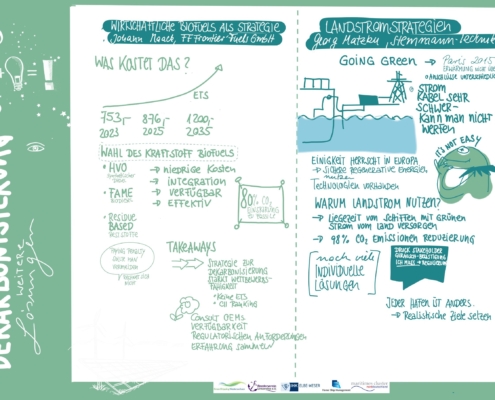 DEKARBONISIERUNG
weitere
Lösungen
WIRTSCHAFTLICHE BIOFUELS ALS STRATEGIE
Johann Maack, FF Frontier-Fuels GmbH
WAS KOSTET DAS?
ETS
753,- 876,- 1200,-
2023 2025 2035
WAHL DES KRAFTSTOFF BIOFUELS
• HVO
• FAME
• RESIDUE
BASED
→ niedrige Kosten
→ INTEGRATION
→ VERFÜGBAR
→ EFFEKTIV
80% CO2
TAKEAWAYS
→ STRATEGIE ZUR
DEKARBONISIERUNG
STÄRKT WETTBEWERBS-
FÄHIGKEIT
• KEINE ETS
• CII RANKING
Consult OEMs
VERFÜGBARKEIT
REGULATORISCHEN ANFORDERUNGEN
ERFAHRUNG SAMMELN
LANDSTROMSTRATEGIEN
GOING GREEN → Paris 2015
→ STROM
KABEL SEHR
SCHWER-
KANN MAN NICHT
WERFEN
IT'S NOT EASY
EINIGKEIT HERRSCHT IN EUROPA
→ Sichere regenerative Energien
nutzen
Technologien vorhanden
WARUM LANDSTROM NUTZEN?
→ LIEGEZEIT VON SCHIFFEN MIT GRÜNEN
STROM VOM LAND VERSORGEN
→ 98% CO2 EMISSIONEN REDUZIERUNG
noch viele
INDIVIDUELLE
LÖSUNGEN
DRUCK STAKEHOLDER
JEDER HAFEN IST ANDERS
→ Realistische Ziele setzen